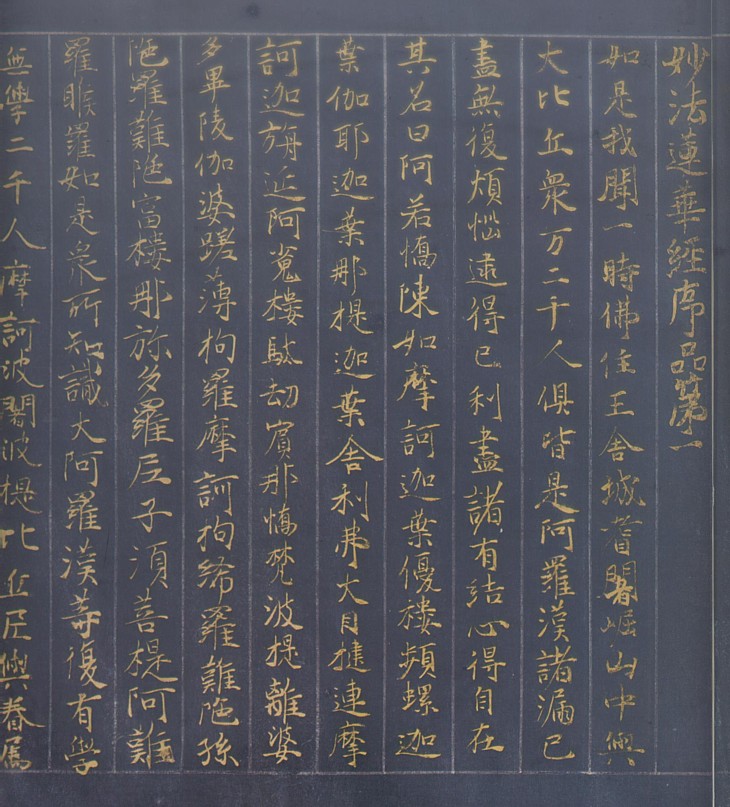 妙法蓮華經序品第一
如是我聞一時佛住王舍城耆闍崛山中與
大比丘衆万二千人俱皆是阿羅漢諸漏已
盡無復煩惱逮得己利盡諸有結心得自在
其名曰阿若憍陳如摩訶迦葉優樓頻螺迦
葉伽耶迦葉那提迦葉舍利弗大目揵連摩
訶迦旃延阿㝹樓馱劫賓那憍梵波提離婆
多畢陵伽婆蹉薄拘羅摩訶拘絺羅難陁孫
陁羅難陁富樓那弥多羅尼子須菩提阿難
羅睺羅如是衆所知識大阿羅漢等復有學
無學二千人摩訶波闍波提比丘尼與眷属